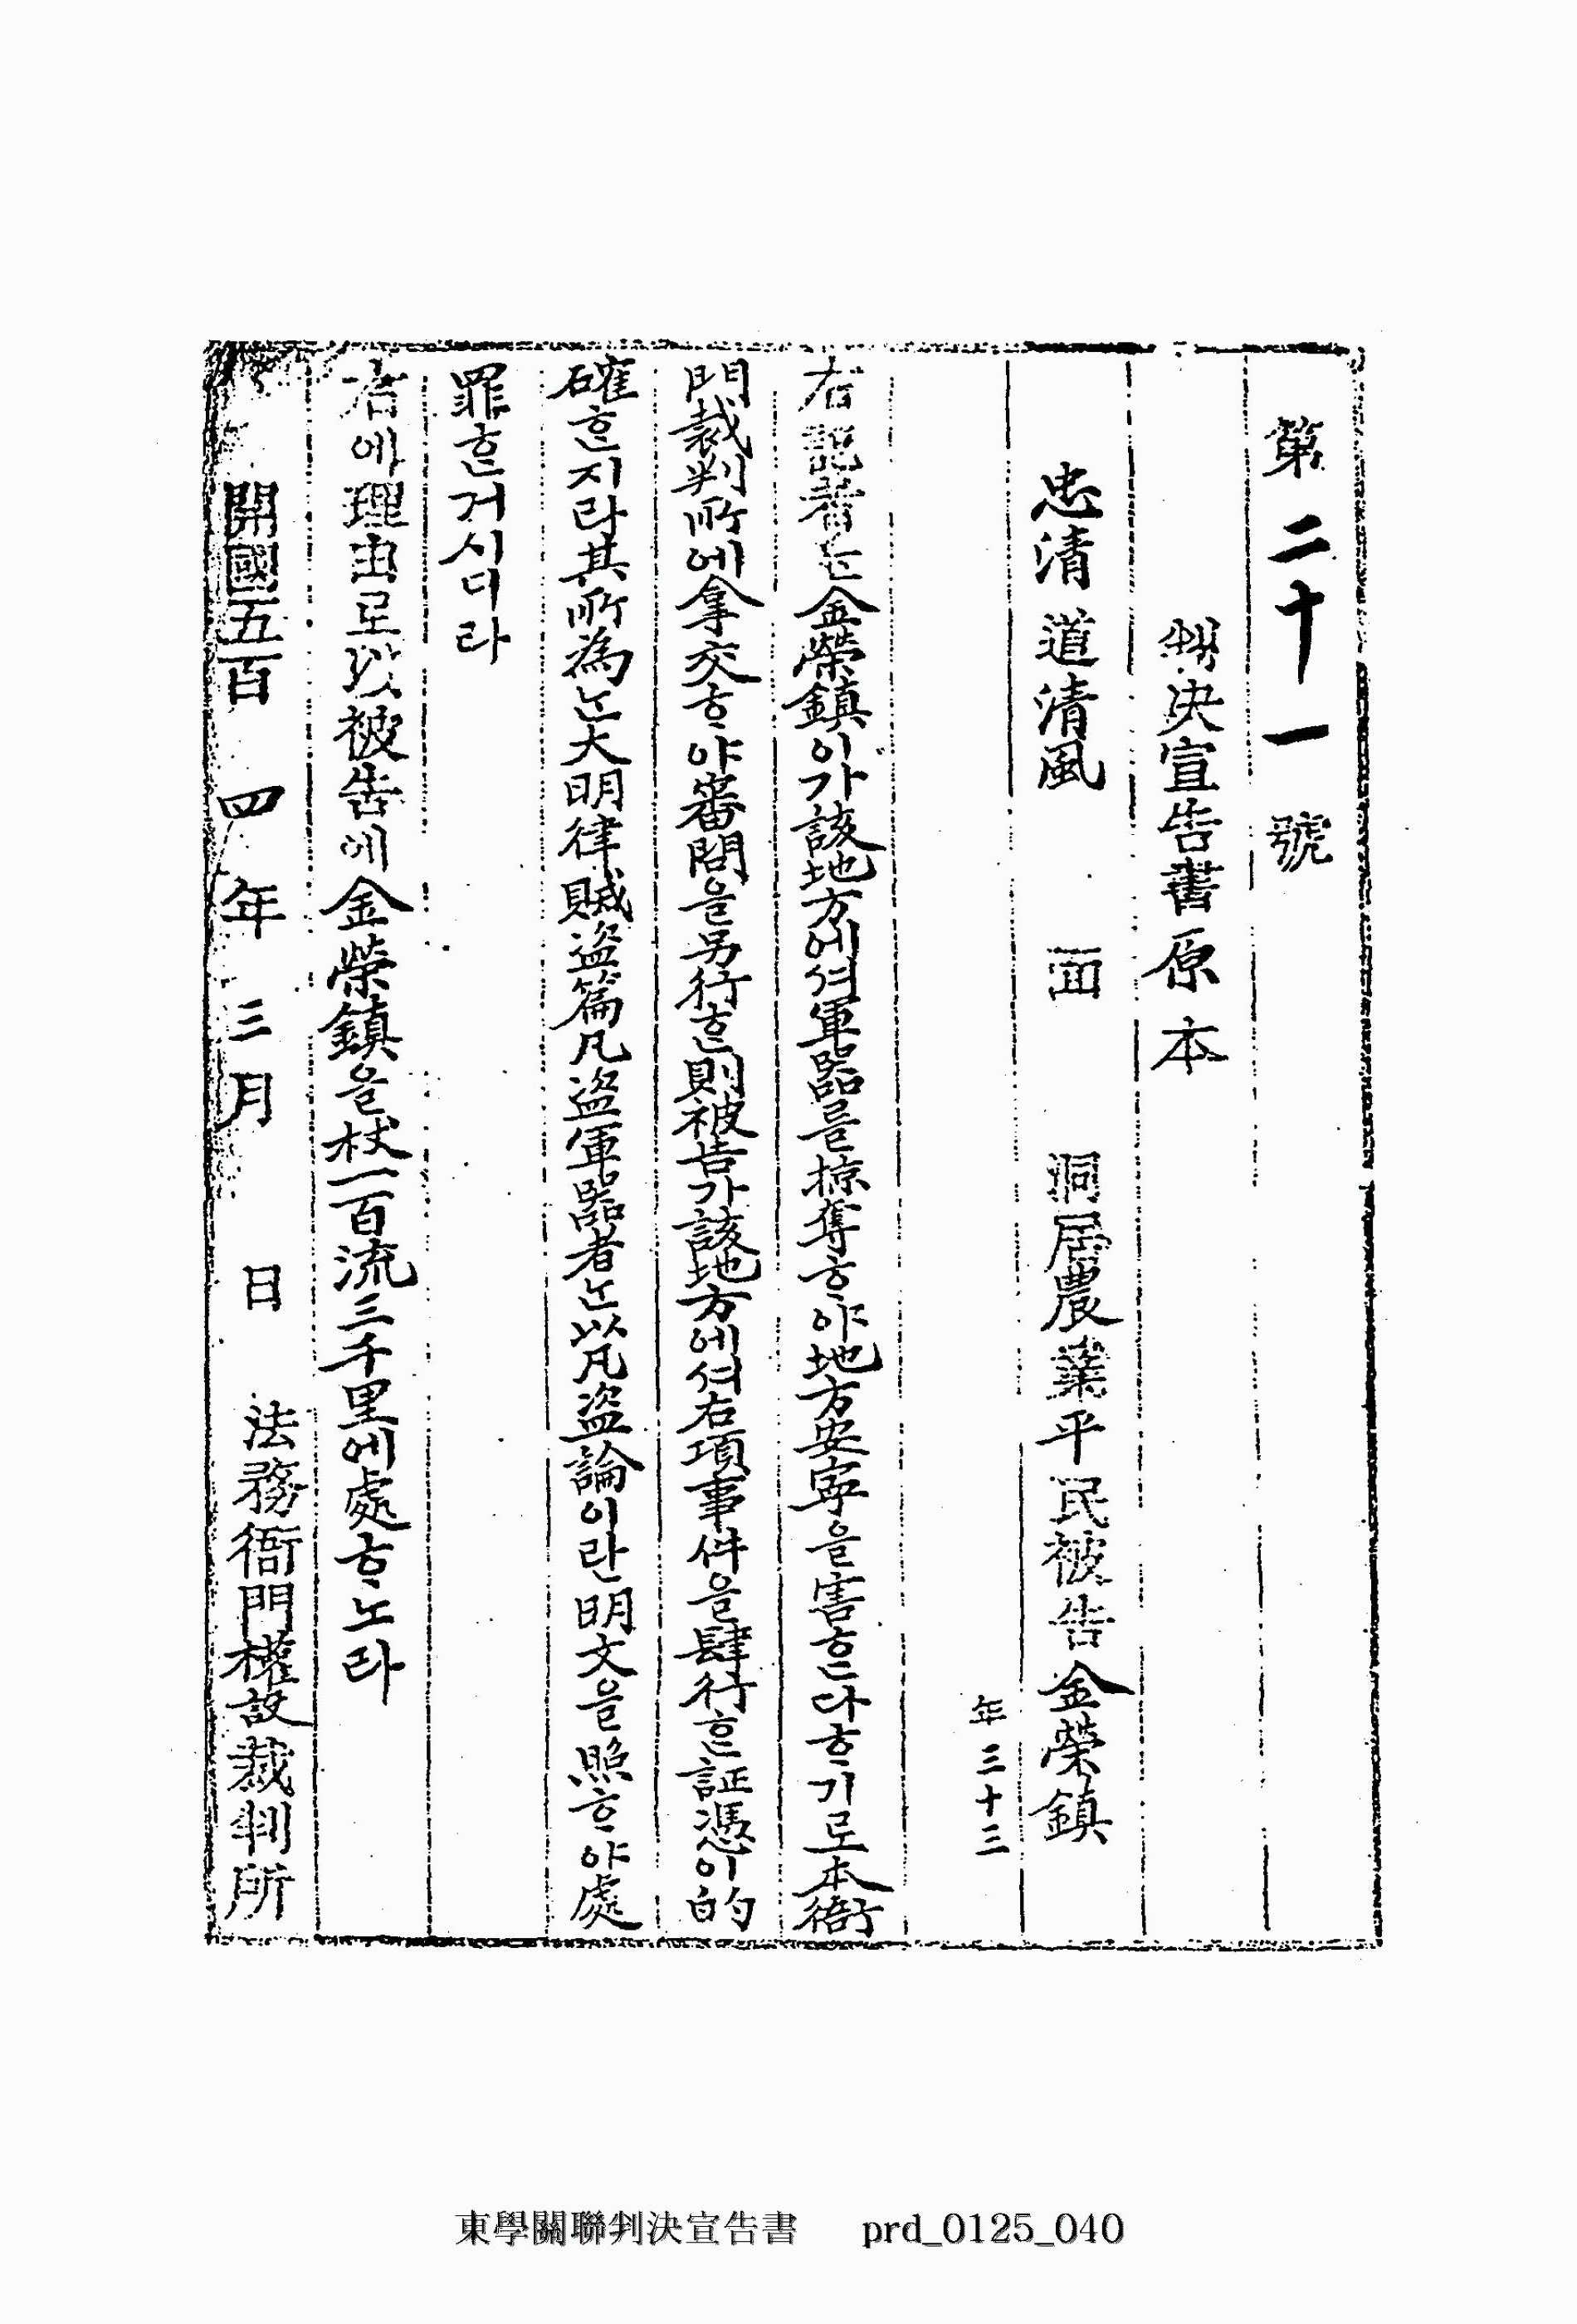 第二十一號
判決宣告書原本
忠淸道淸風 面 洞居農業平民被告金榮鎭
年三十三
右記者는金榮鎭이가該地方에셔軍器를掠奪ᄒᆞ야地方安寧을害ᄒᆞᆫ다ᄒᆞ기로本衙
門裁判所에拿交ᄒᆞ야審問을另行ᄒᆞᆫ則被告가該地方에셔右項事件을肆行ᄒᆞᆫ証憑이的
確ᄒᆞᆫ지라其所為ᄂᆞᆫ大明律賊盜篇凡盜軍器者ᄂᆞᆫ以凡盜論이란明文을照ᄒᆞ야處
罪ᄒᆞᆫ거시디라
右에理由로以ᄉᆞ被告에金榮鎭을杖一百流三千里에處ᄒᆞ노라
開國五百四年三月 日 法務衙門權設裁判所
東學關聯判決宣告書 prd_0125_040